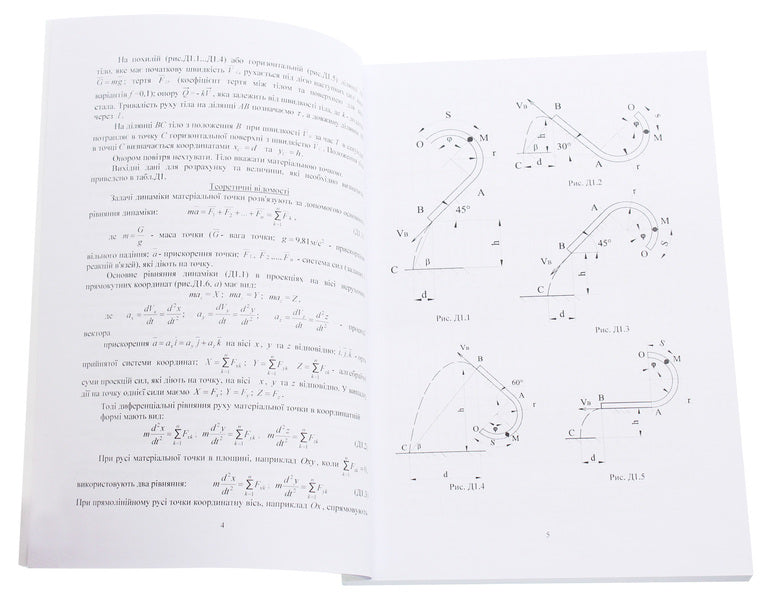 На похилій (рис.Д1.1...Д1.4) або горизонтальній (рис.Д1.5)
тіло, яке має початкову швидкість рухається під дією наступних
G = mg; тертя (коефіцієнт тертя між тілом та поверхнею для
варіантів f =0,1); опору Q = -kV, яка залежить від швидкості тіла, де k
стала. Тривалість руху тіла на ділянці AB позначаємо τ, а довжину ділянки
через
На ділянці BC тіло з положення B при швидкості за час T
потрапляє в точку C горизонтальної поверхні з швидкістю Положення
в точці C визначається координатами x_C = d та y_C = h.
Опором повітря нехтувати. Тіло вважати матеріальною точкою.
Вихідні дані для розрахунку та величини, які необхідно
приведено в табл.Д1.
Теоретичні відомості
Задачі динаміки матеріальної точки розв'язують за допомогою
рівняння динаміки: ma = F₁ + F₂ + ... + Fₙ = ∑ F_k,
де m = G/g - маса точки (G - вага точки; g = 9,81м/с² -
вільного падіння; a - прискорення точки; F₁, F₂,..., Fₙ - система сил
реакцій в'язей), які діють на точку.
Основне рівняння динаміки (Д1.1) в проекціях на вісі
прямокутних координат (рис.Д1.6, а) має вид:
ma_x = X; ma_y = Y; ma_z = Z,
де a_x = dV_x/dt = d²x/dt²; a_y = dV_y/dt = d²y/dt²; a_z = dV_z/dt = d²z/dt² -
вектора
прискорення a = a_x i + a_y j + a_z k на вісі x, y та z відповідно; i, j, k -
прийнятої системи координат: X = ∑ F_xk; Y = ∑ F_yk Z = ∑ F_zk -
суми проекцій сил, які діють на точку, на вісі x, y та z відповідно. У
дії на точку однієї сили маємо X = F_x; Y = F_y; Z = F_z.
Тоді диференціальні рівняння руху матеріальної точки в координатній
формі мають вид:
m d²x/dt² = ∑ F_xk; m d²y/dt² = ∑ F_yk; m d²z/dt² = ∑ F_zk (Д1.2)
При русі матеріальної точки в площині, наприклад Oxy, коли
використовують два рівняння: m d²x/dt² = ∑ F_xk; m d²y/dt² = ∑ F_yk (Д1.3)
При прямолінійному русі точки координатну вісь, наприклад Ox, спрямовують
4
S
O
φ
M
B
A
r
45°
V_B
h
C
β
d
Рис. Д1.1
V_B
B
O
S
M
φ
h
β
30°
C
d
A
r
Рис. Д1.2
r
A
B
M
φ
O
S
45°
V_B
h
C
β
d
Рис. Д1.3
V_B
B
60°
A
h
φ
O
S
M
r
C
β
d
Рис. Д1.4
S
O
M
φ
V_B
B
A
r
h
C
d
Рис. Д1.5
5